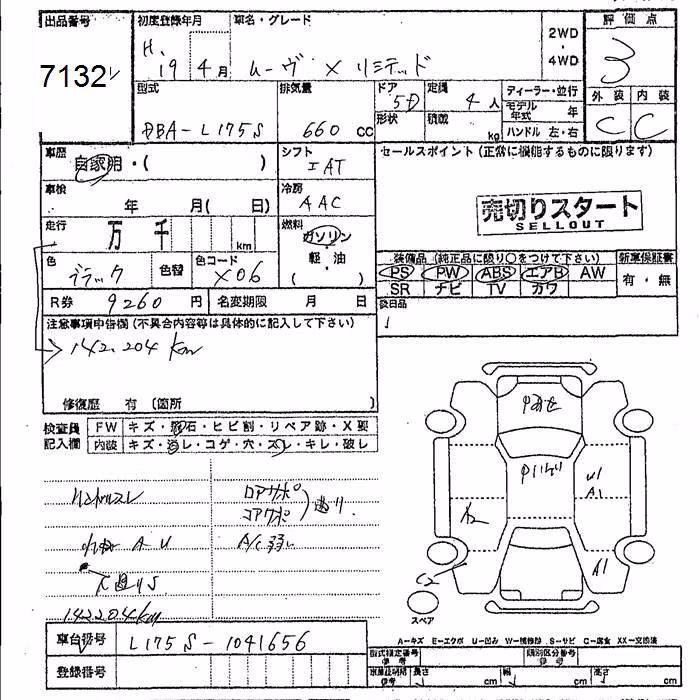 出品番号
7132
初度登録年月
H. 19 4月
車名・グレード
ムーヴ X リミテッド
2WD
・
4WD
評価点
3
外装 内装
C C
型式
DBA-L175S
排気量
660 cc
ドア
5D
形状
定員
4人
積載
kg
ディーラー・並行
モデル年式 年
ハンドル 左・右
車歴
自家用・( )
シフト
IAT
セールスポイント(正常に機能するものに限ります)
車検
年 月( 日)
冷房
AAC
売切りスタート
SELLOUT
走行
万 千 km
燃料
ガソリン
軽・油
( )
色
ブラック
色替
色コード
X06
装備品(純正品に限り○をつけて下さい)
新車保証書
PS PW ABS エアB AW
SR ナビ TV カワ
有・無
R券 9260円
名変期限 月 日
後日品
注意事項申告欄(不具合内容等は具体的に記入して下さい)
142,204 km
修復歴 有 (箇所 )
検査員
記入欄
FW キズ・飛石・ヒビ割・リペア跡・X要
内装 キズ・汚レ・コゲ・穴・スレ・キレ・破レ
ハンドルスレ
A U
142204km
A/C弱い
U1
A1
A2
A1
C2
スペア
A-キズ E-エクボ U-凹み W-補修跡 S-サビ C-腐食 XX-交換済
車台番号
L175S-1041656
登録番号
型式指定番号
参考
類別区分番号
参考
車庫証明用
参考
長さ cm
幅 cm
高さ cm